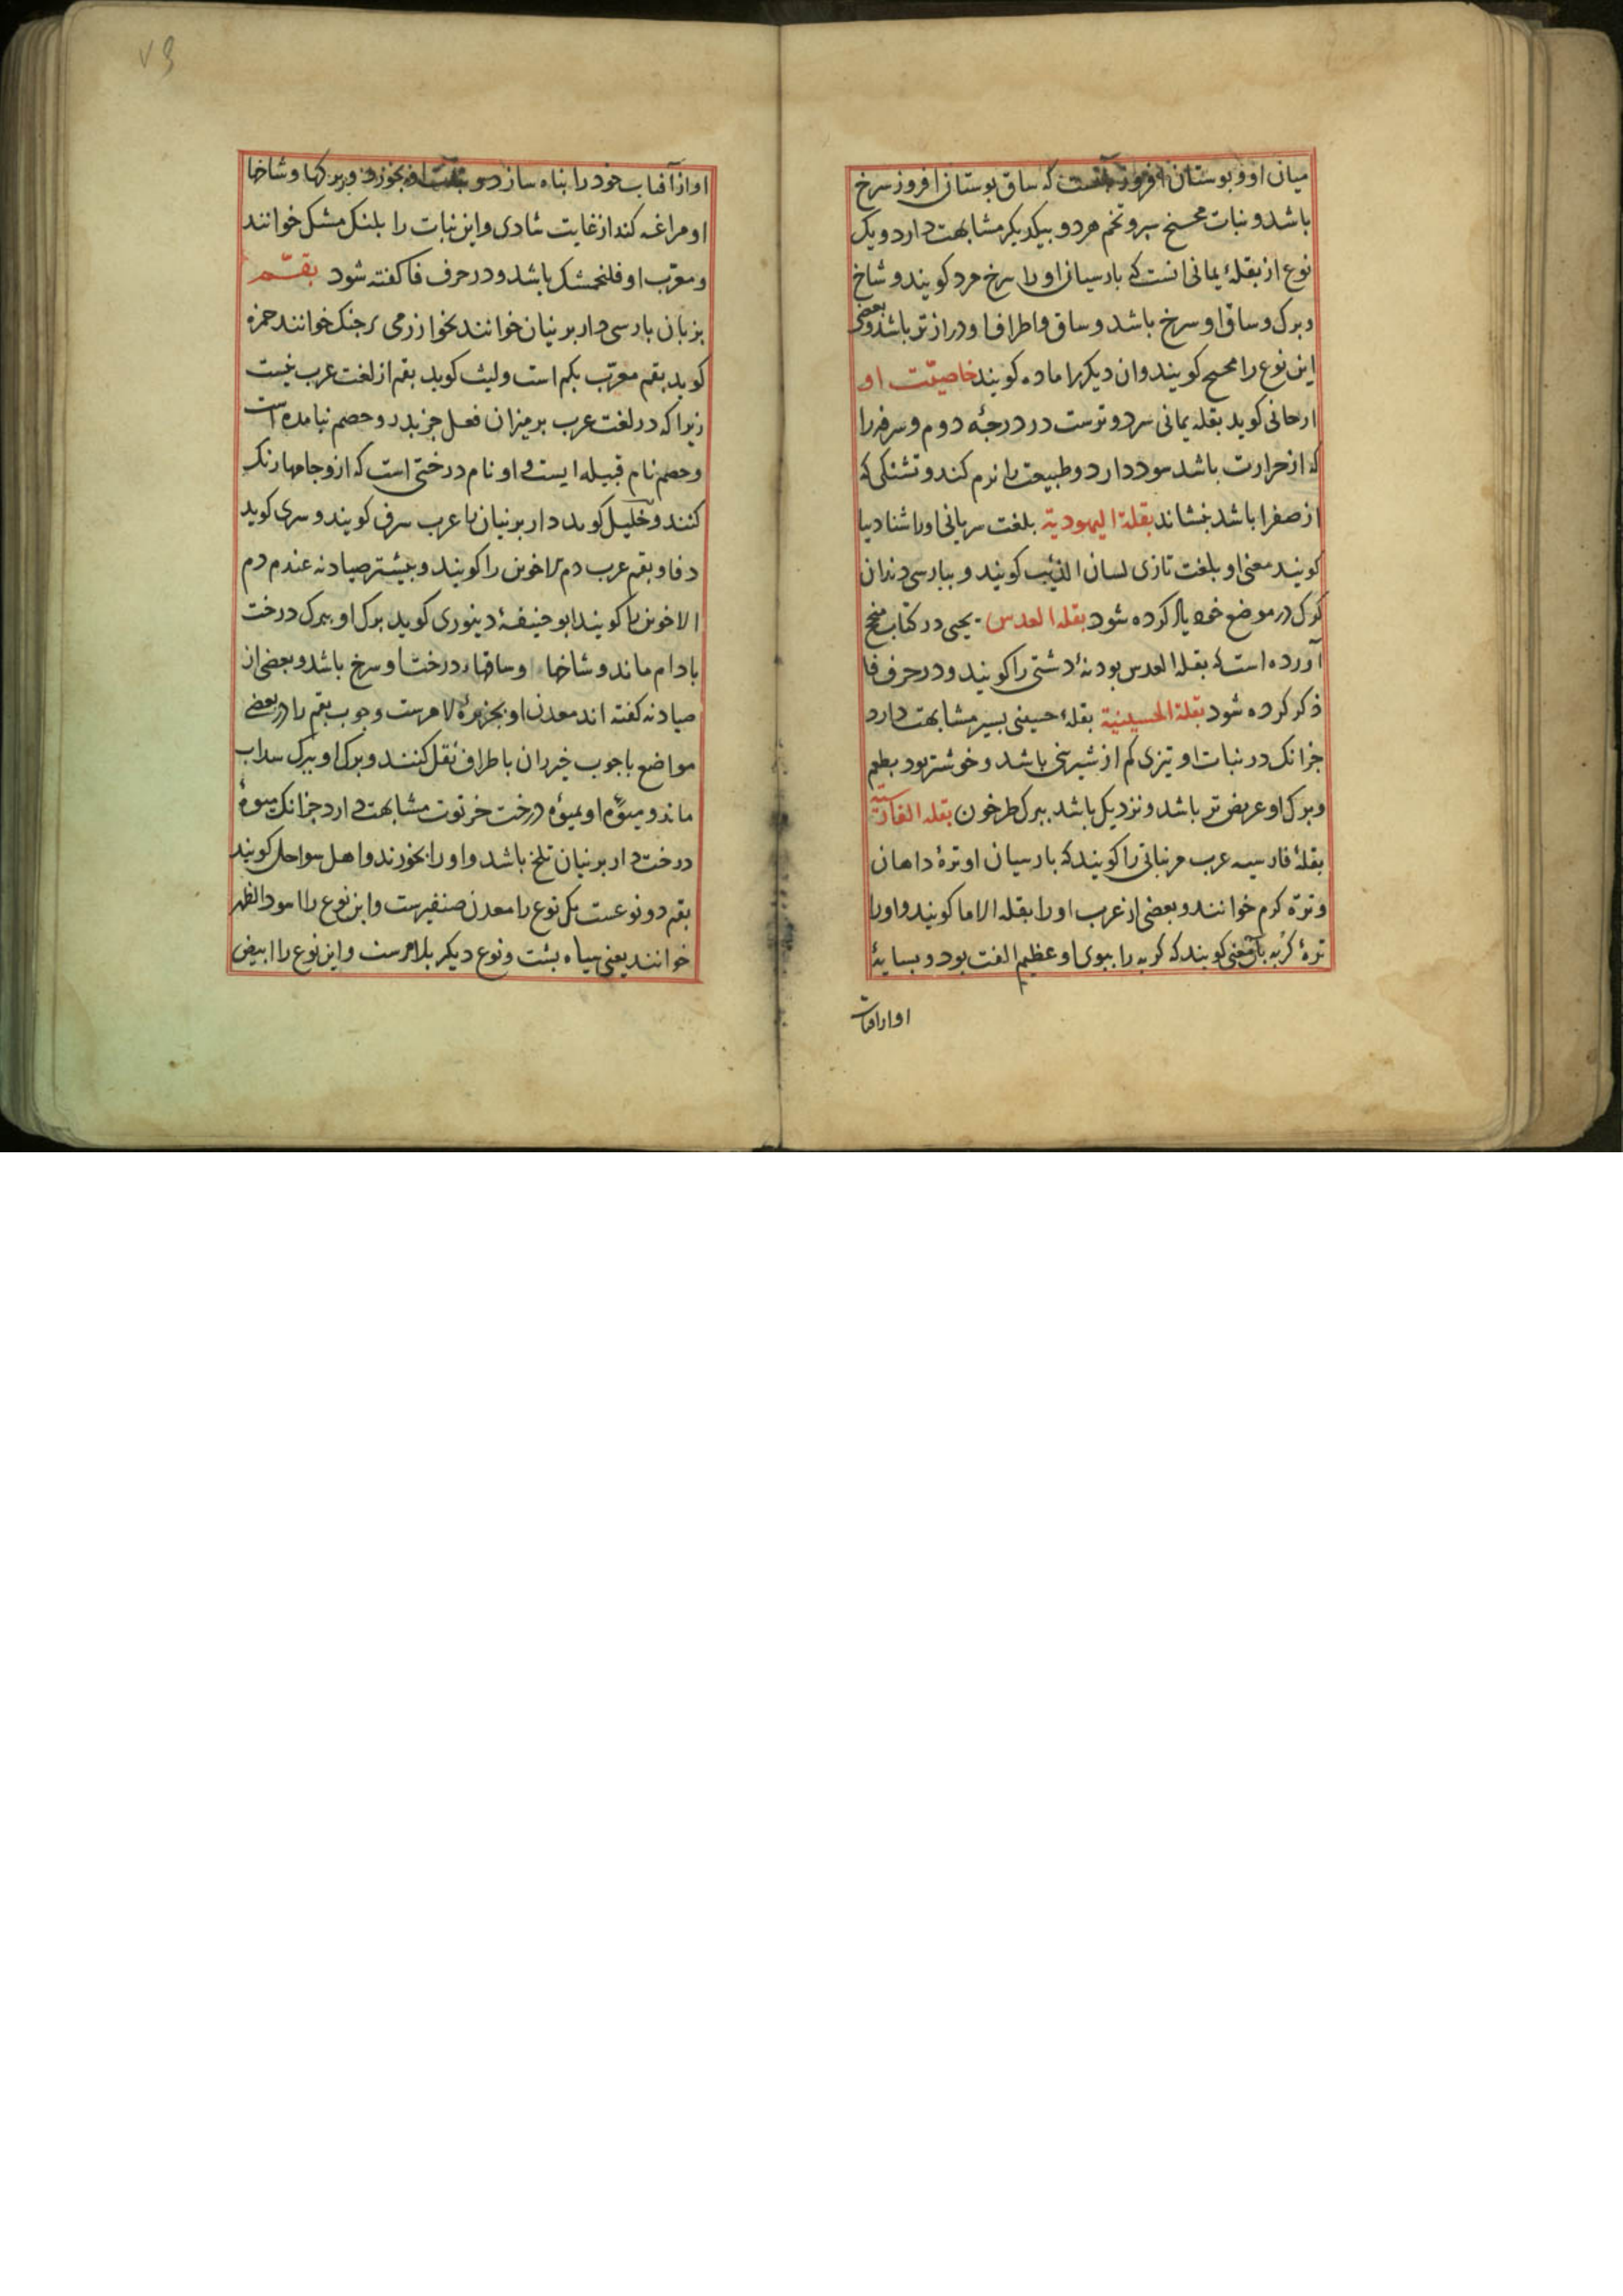 میان او و بوستان افروز آنست که ساق بوستان افروز سرخ
باشد و نبات محسح سبز و تخم هر دو بیکدیکر مشابهت دارد و یک
نوع از بقلهٔ یمانی انست که بارسیان او را سرخ مرد کویند و شاخ
و برک و ساق او سرخ باشد و ساق و اطراف او دراز تر باشد و بعضی
این نوع را محسح کویند وان دیکر را ماده کویند خاصیّت او
ارحانی کوید بقله یمانی سرد و ترست در درجهٔ دوم و سرفه را
که از حرارت باشد سود دارد و طبیعت را نرم کند و تشنکی که
از صفرا باشد بنشاند بقلة الیهودیة بلغت سریانی او را شنادیبا
کویند معنی او بلغت تازی لسان الذئب کویند و ببارسی دندان
کرک در موضع خود یاد کرده شود بقله العدس یحیی در کتاب منح
آورده است که بقله العدس بودنهٔ دشتی را کویند و در حرف فا
ذکر کرده شود بقلة الحسینیة بقلهٔ حسینی بسیر مشابهت دارد
جزانک در نبات او تیزی کم از شیرینی باشد و خوشتر بود بطعم
و برک او عریض تر باشد و نزدیک باشد ببرک طرخون بقله الفارسیة
بقلهٔ فارسیه عرب مر نباتی را کویند که بارسیان او ترهٔ داهان
و ترّه کرم خوانند و بعضی از عرب او را بقله الاما کویند و او را
ترهٔ کربه بآن معنی کویند که کربه را ببوی او عظیم الفت بود و بسایهٔ
او از آفتاب
۷۹
او از آفتاب خود را بناه سازد و نبات او بخورد و بر برکها و شاخها
او مراغه کند از غایت شادی و این نبات را بلنک مشک خوانند
و معرّب او فلنجمشک باشد و در حرف فا کفته شود بقّم
بزبان بارسی دار برنیان خوانند بخوارزمی رجنک خوانند حمزه
کوید بقم معرّب بکم است و لیث کوید بقم از لغت عرب نیست
زیرا که در لغت عرب بر میزان فعل جز بذر و خصم نیامده است
و خصم نام قبیله ایست و او نام درختی است که ازو جامها رنک
کنند و خلیل کوید دار برنیان را عرب سرف کویند و سری کوید
دفا و بقم عرب دم الاخوین را کویند و بیشتر صیادنه عندم دم
الاخوین را کویند ابو حنیفهٔ دینوری کوید برک او ببرک درخت
بادام ماند و شاخها و ساقهاء درخت او سرخ باشد و بعضی از
صیادنه کفته اند معدن او بجزیرهٔ لامرست و چوب بقم را در بعضی
مواضع باجوب خیزران باطراف نقل کنند و برک او ببرک سداب
ماند و میوهٔ او بمیوهٔ درخت خرنوت مشابهت دارد جزانک میوهٔ
درخت دار برنیان تلخ باشد و او را بخورند و اهل سواحل کویند
بقم دو نوعست یک نوع را معدن صنفیرست و این نوع را اسود الظهر
خوانند یعنی سیاه بشت و نوع دیکر بلامرست و این نوع را ابیض